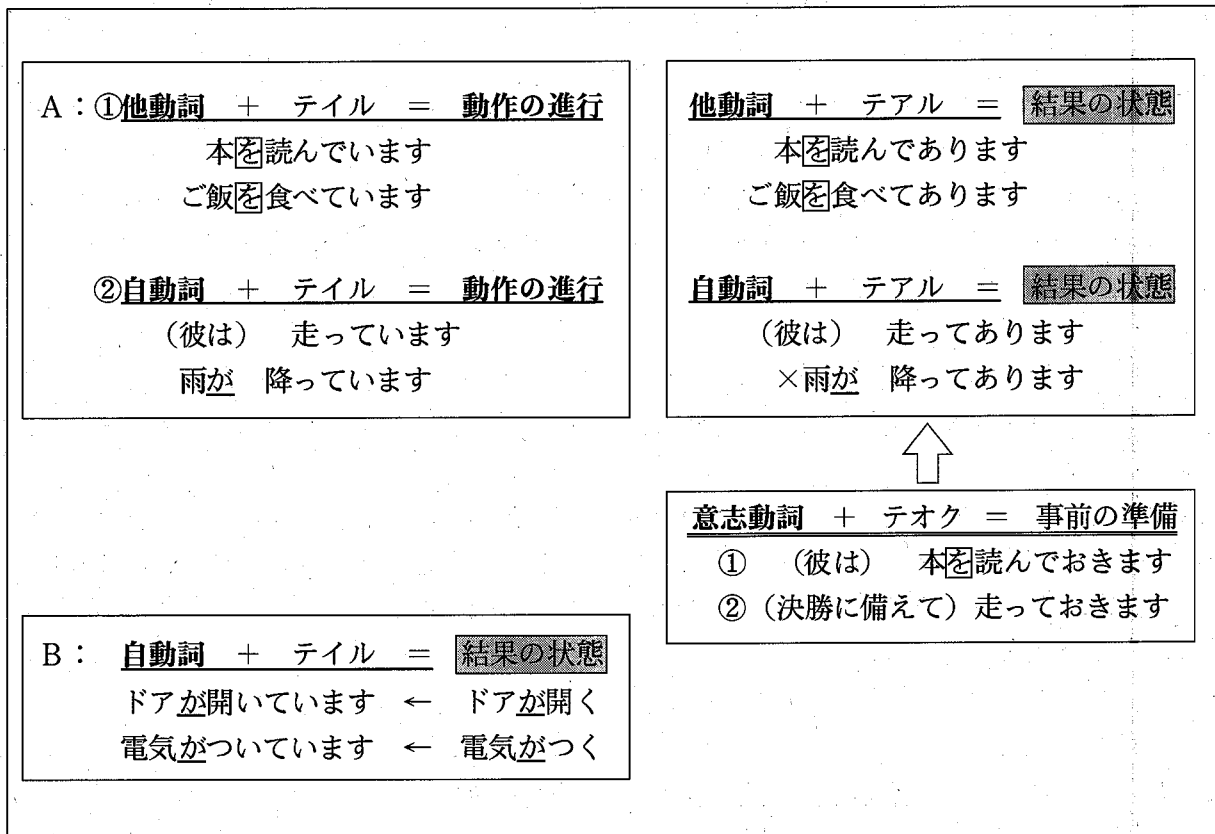 A：①他動詞　＋　テイル　＝　動作の進行
本を読んでいます
ご飯を食べています
②自動詞　＋　テイル　＝　動作の進行
（彼は）　走っています
雨が　降っています
他動詞　＋　テアル　＝　結果の状態
本を読んであります
ご飯を食べてあります
自動詞　＋　テアル　＝　結果の状態
（彼は）　走ってあります
×雨が　降ってあります
意志動詞　＋　テオク　＝　事前の準備
①　（彼は）　本を読んでおきます
②（決勝に備えて）走っておきます
B：　自動詞　＋　テイル　＝　結果の状態
ドアが開いています　←　ドアが開く
電気がついています　←　電気がつく